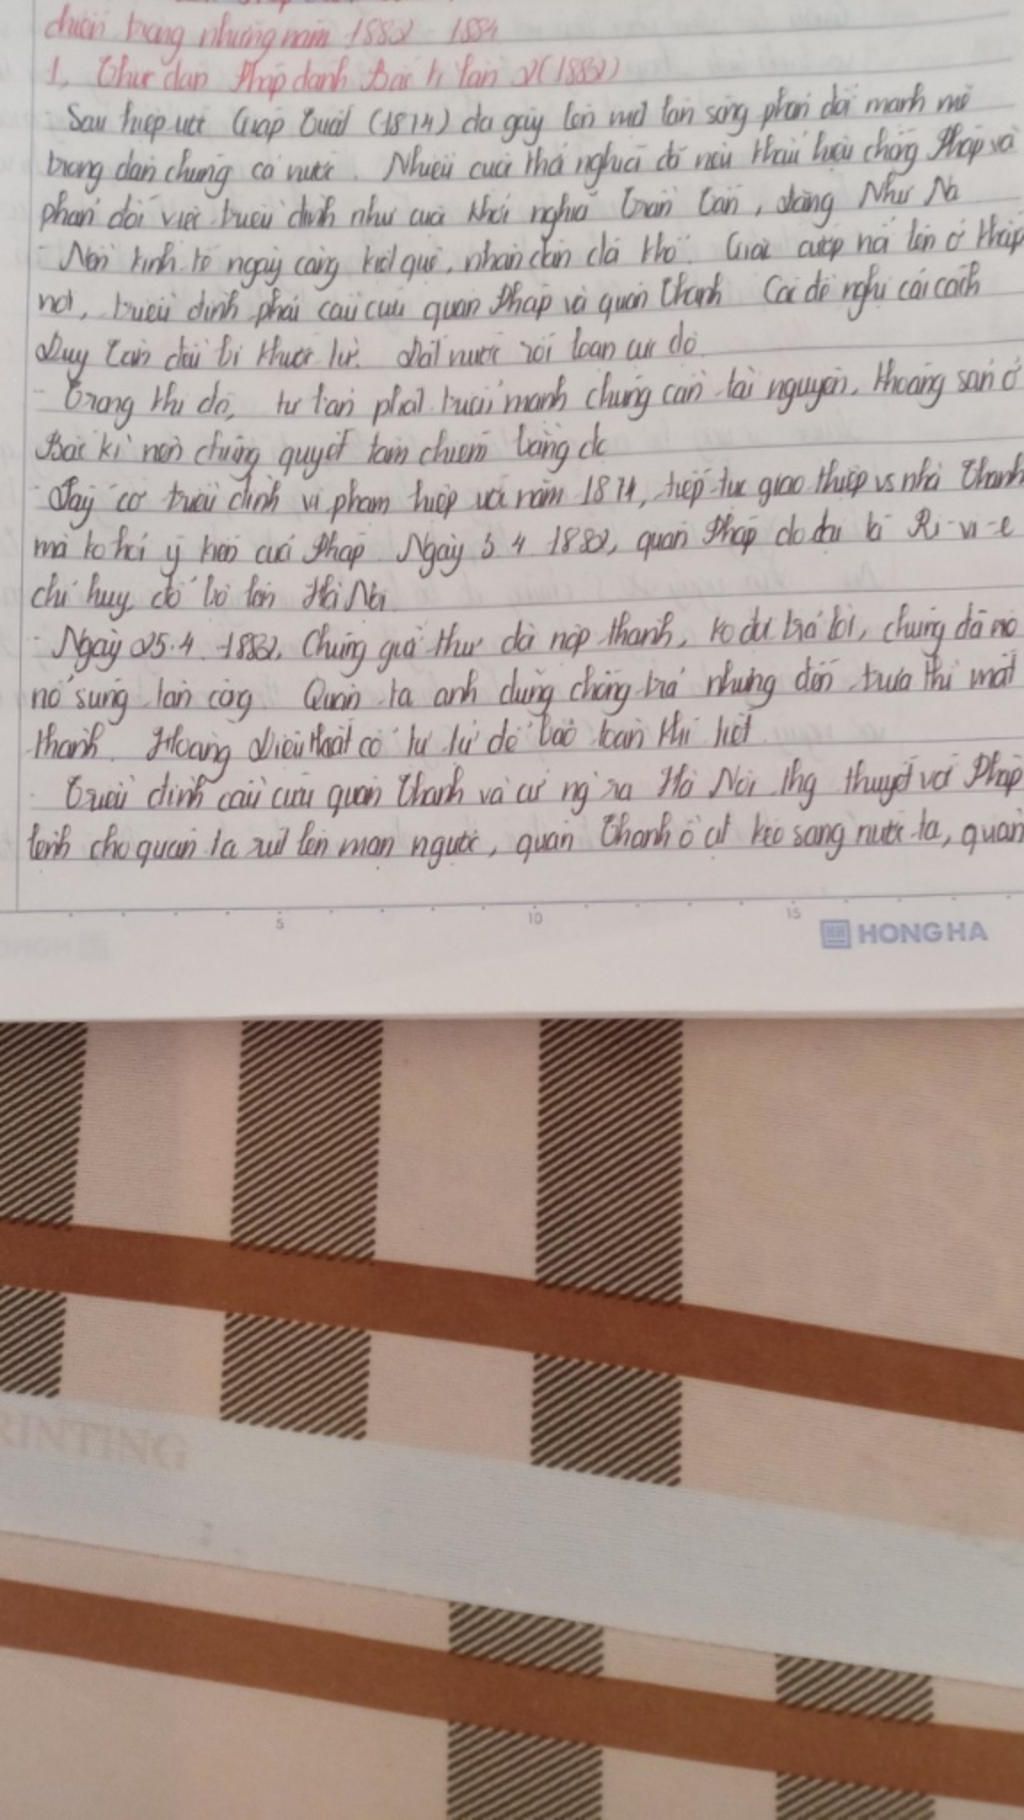 chiến trong những năm 1882 - 1884
1, Thực dân Pháp đánh Bắc kì lần 2 (1882)
Sau hiệp ước Giáp Tuất (1874) đã gây lên một làn sóng phản đối mạnh mẽ
trong dân chúng cả nước. Nhiều cuộc khởi nghĩa đã nêu khẩu hiệu chống Pháp và
phản đối việc triều đình như cuộc khởi nghĩa Trần Tấn, Đặng Như Mai
- Nền kinh tế ngày càng kiệt quệ, nhân dân đói khổ. Giặc cướp nổi lên ở khắp
nơi, triều đình phải cầu cứu quân Pháp và quân Thanh Các đề nghị cải cách
Duy Tân đều bị khước từ. Đất nước rối loạn cực độ.
- Trong khi đó, tư bản phát triển mạnh chúng cần tài nguyên, khoáng sản ở
Bắc kì nên chúng quyết tâm chiếm bằng đc
- Lấy cớ triều đình vi phạm hiệp ước năm 1874, tiếp tục giao thiệp vs nhà Thanh
mà ko hỏi ý kiến của Pháp. Ngày 3.4.1882, quân Pháp do đại tá Ri-vi-e
chỉ huy đổ bộ lên Hà Nội
- Ngày 25.4.1882. Chúng gửi thư đòi nộp thành, ko đợi trả lời, chúng đã nổ
nổ súng tấn công Quân ta anh dũng chống trả nhưng đến trưa thì mất
thành. Hoàng Diệu thắt cổ tự tử để bảo toàn khí tiết.
- Triều đình cầu cứu quân Thanh và cử ng ra Hà Nội thg thuyết với Pháp
lệnh cho quân ta rút lên mạn ngược, quân Thanh ồ ạt kéo sang nước ta, quân
5 10 15
HONG HA
RINTING